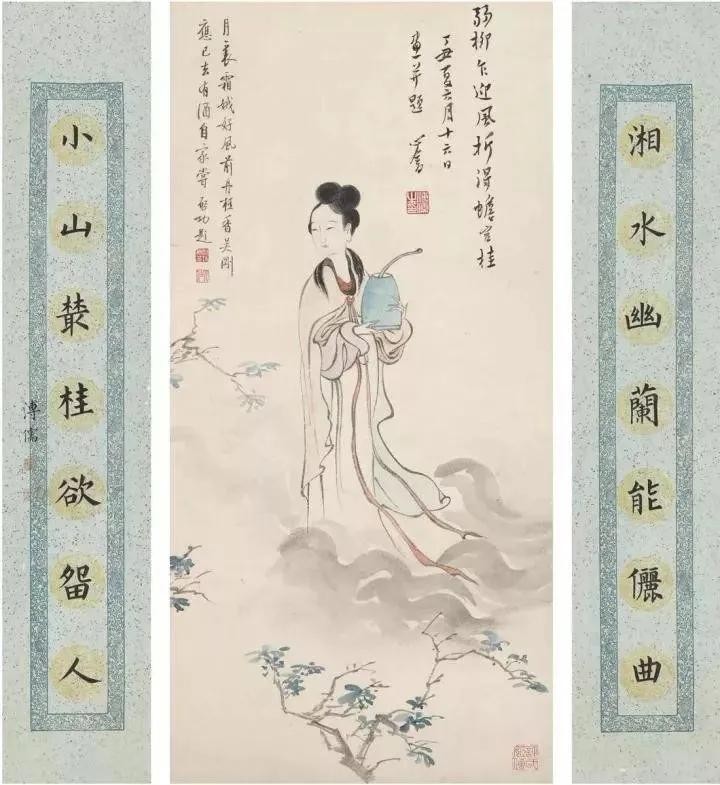 湘水幽蘭能儷曲
弱柳乍迎風折得蟾宮桂
丁丑夏六月十六日
畫并題
月裏霜娥好風前丹桂香吳剛
應已去有酒自家嘗 启功題
小山叢桂欲留人
溥儒